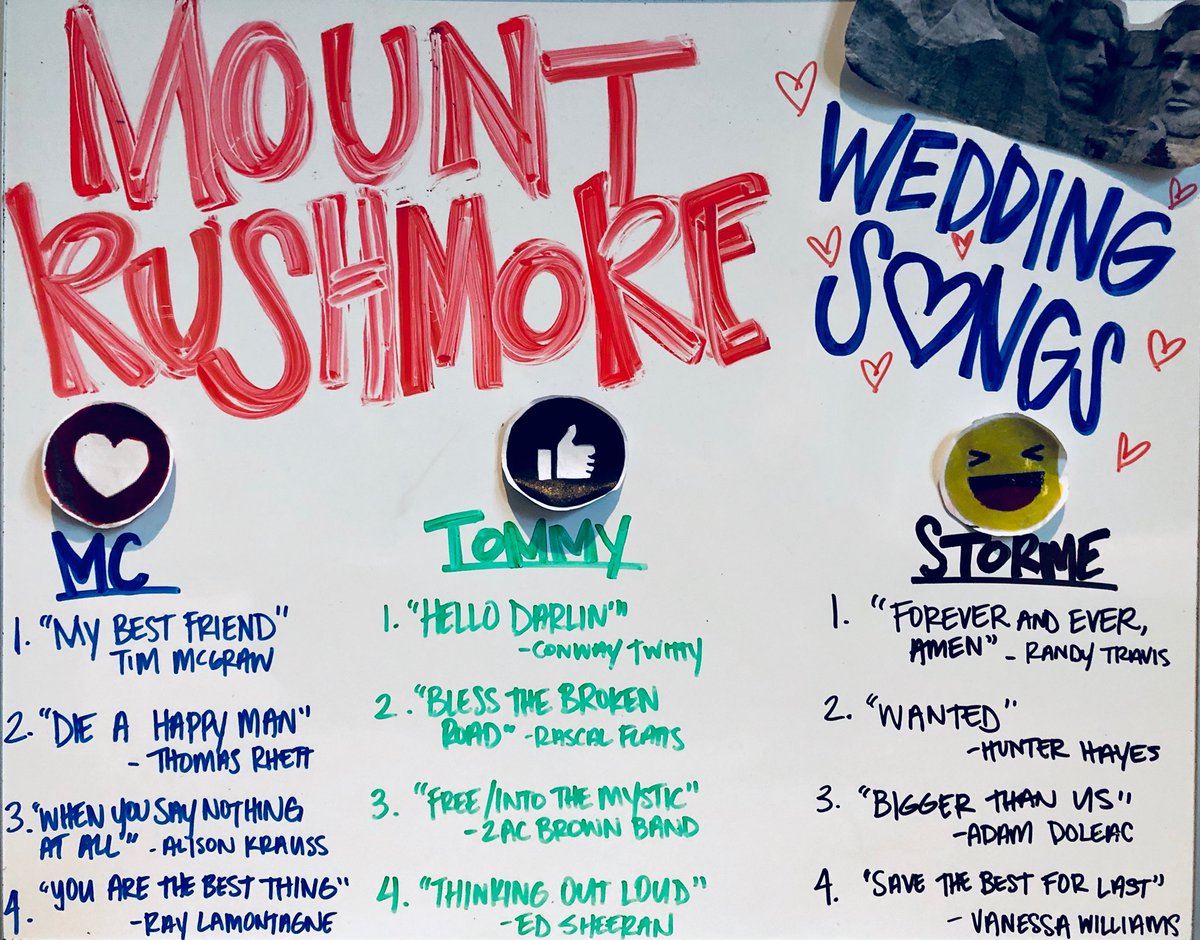 MOUNT
RUSHMORE
WEDDING
SONGS
MC
1. "MY BEST FRIEND"
TIM MCGRAW
2. "DIE A HAPPY MAN"
- THOMAS RHETT
3. "WHEN YOU SAY NOTHING
AT ALL" - ALISON KRAUSS
4. "YOU ARE THE BEST THING"
-RAY LAMONTAGNE
TOMMY
1. "HELLO DARLIN'"
-CONWAY TWITTY
2. "BLESS THE BROKEN
ROAD" -RASCAL FLATTS
3. "FREE/INTO THE MYSTIC"
-ZAC BROWN BAND
4. "THINKING OUT LOUD"
-ED SHEERAN
STORME
1. "FOREVER AND EVER,
AMEN" - RANDY TRAVIS
2. "WANTED"
-HUNTER HAYES
3. "BIGGER THAN US"
-ADAM DOLEAC
4. "SAVE THE BEST FOR LAST"
- VANESSA WILLIAMS